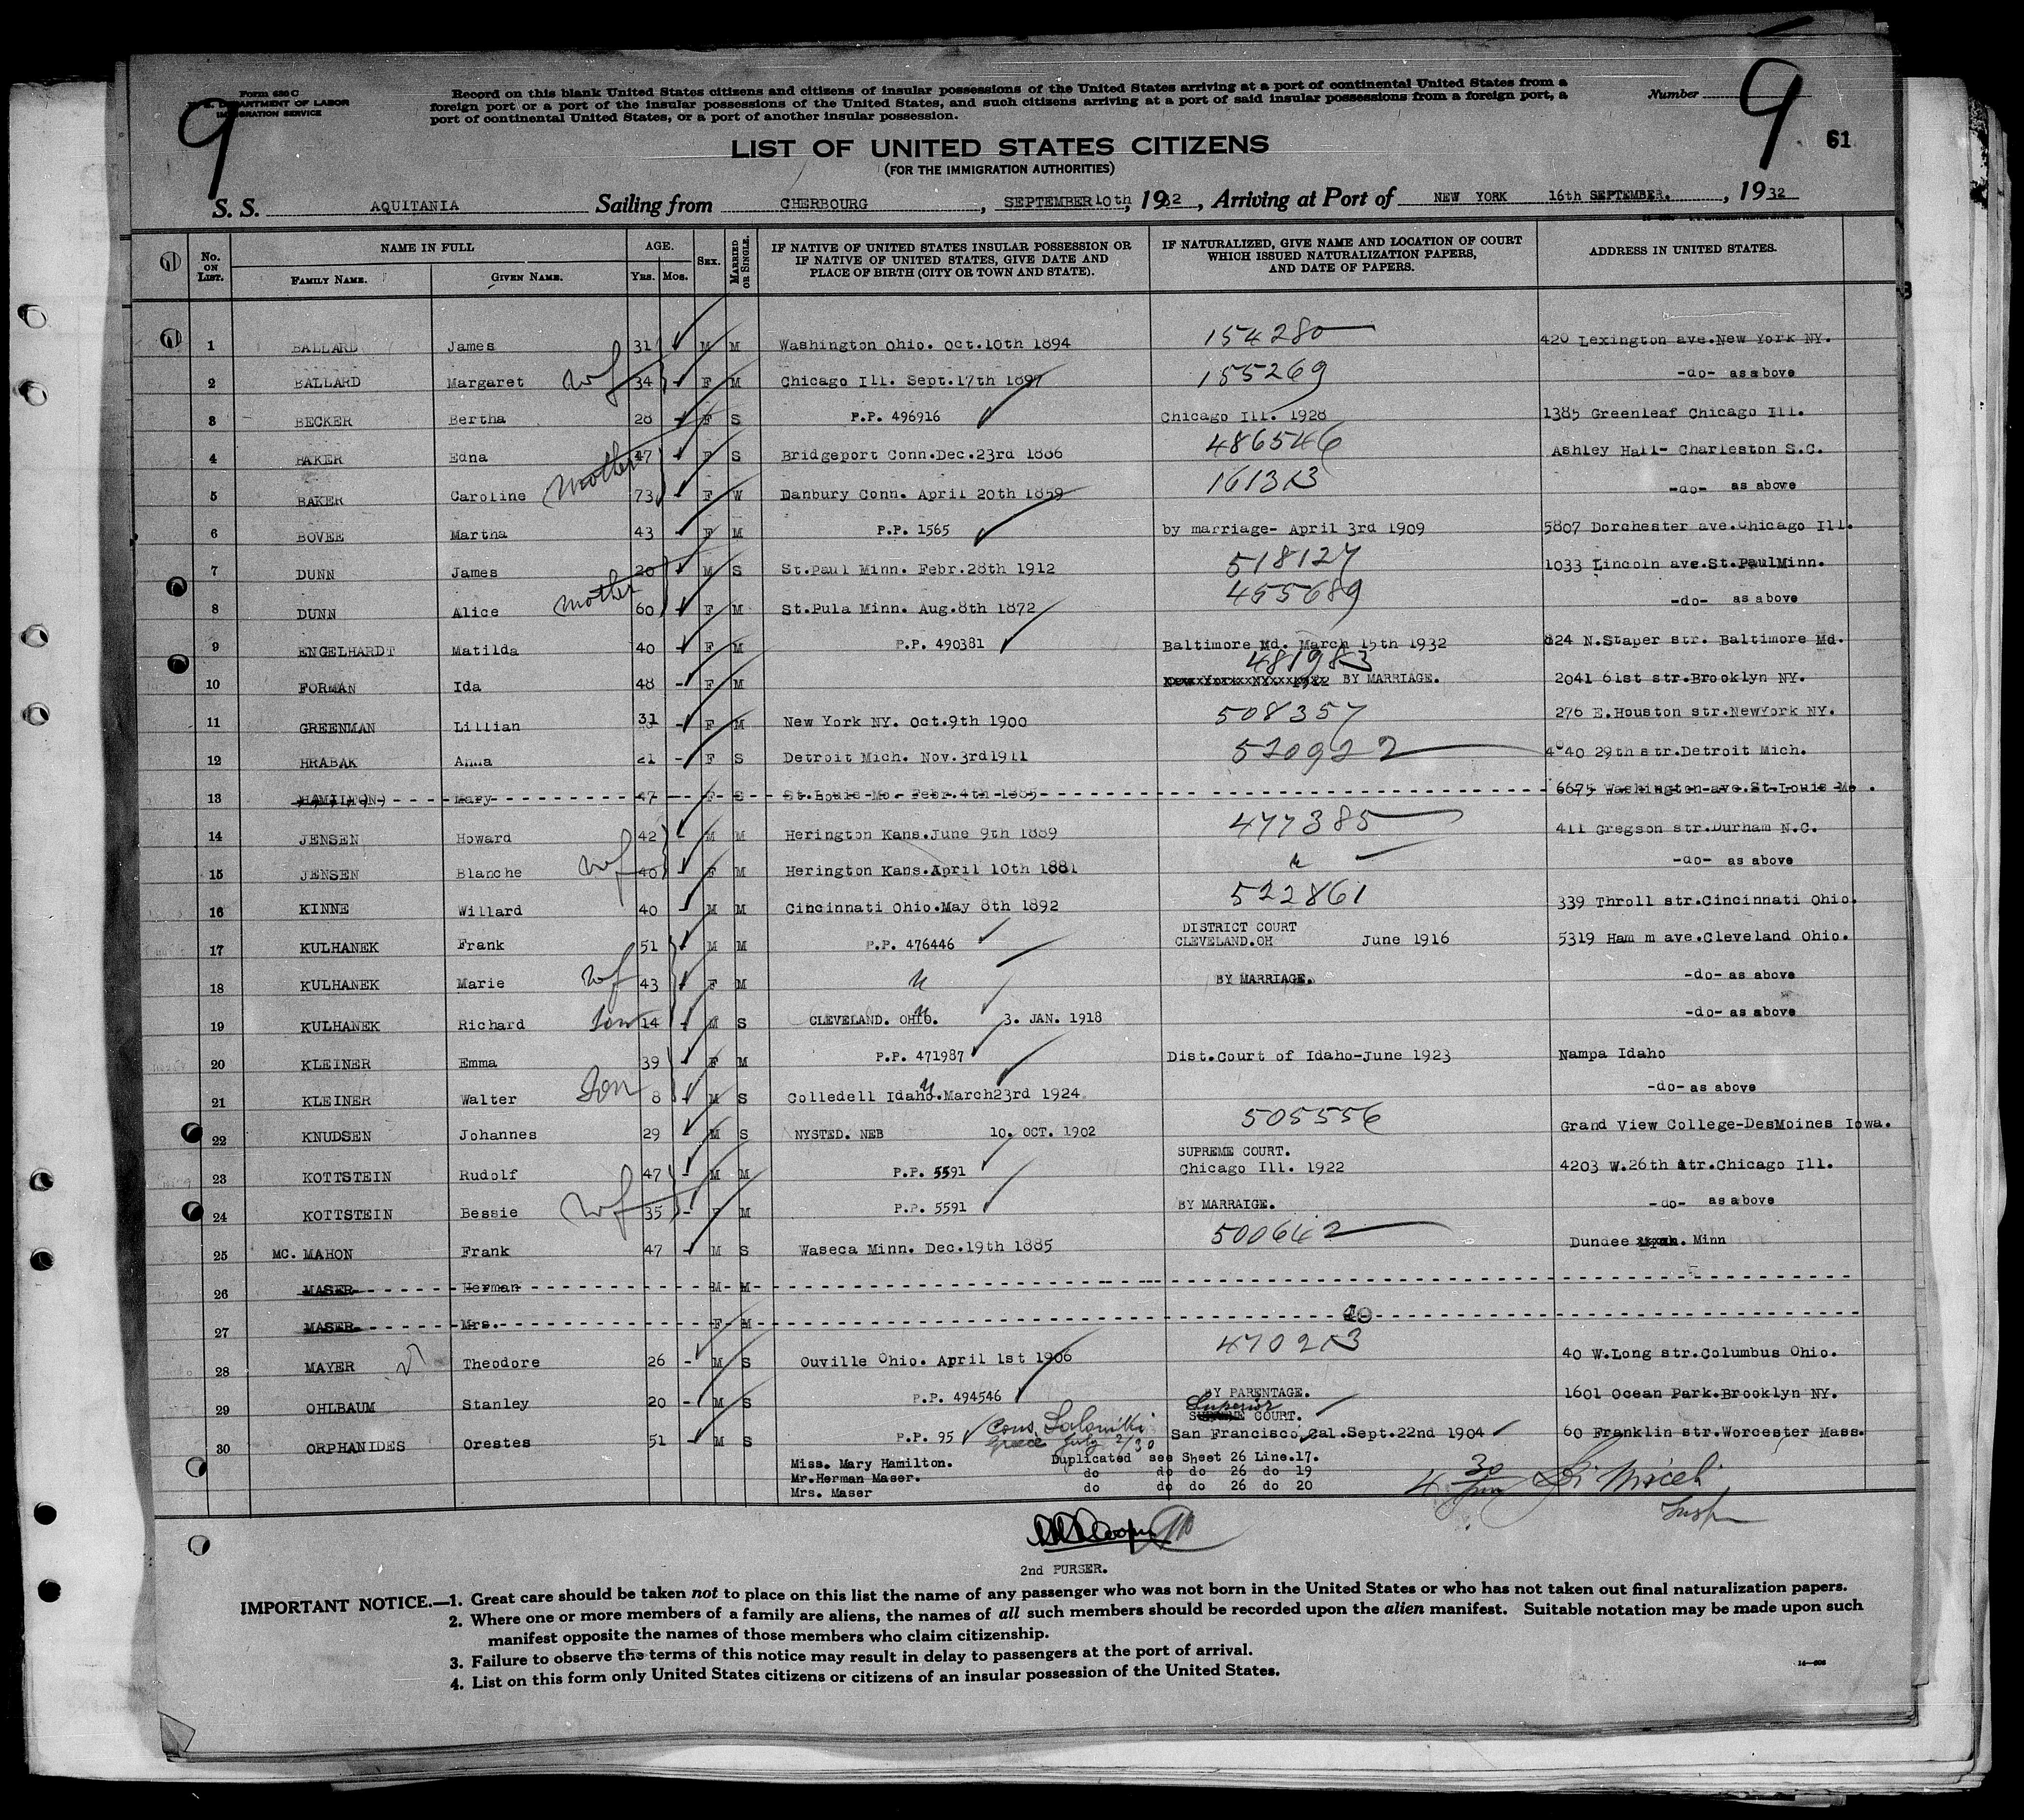 Form 630 C
U. S. DEPARTMENT OF LABOR
IMMIGRATION SERVICE
9
Record on this blank United States citizens and citizens of insular possessions of the United States arriving at a port of continental United States from a
foreign port or a port of the insular possessions of the United States, and such citizens arriving at a port of said insular possessions from a foreign port, a
port of continental United States, or a port of another insular possession.
Number
9
61
LIST OF UNITED STATES CITIZENS
(FOR THE IMMIGRATION AUTHORITIES)
S. S. AQUITANIA Sailing from CHERBOURG, SEPTEMBER 10th, 1932, Arriving at Port of NEW YORK 16th SEPTEMBER., 1932
No. ON LIST. NAME IN FULL FAMILY NAME. GIVEN NAME. AGE. YRS. MOS. SEX. MARRIED OR SINGLE. IF NATIVE OF UNITED STATES INSULAR POSSESSION OR IF NATIVE OF UNITED STATES, GIVE DATE AND PLACE OF BIRTH (CITY OR TOWN AND STATE). IF NATURALIZED, GIVE NAME AND LOCATION OF COURT WHICH ISSUED NATURALIZATION PAPERS, AND DATE OF PAPERS. ADDRESS IN UNITED STATES.
1 BALLARD James 31 M M Washington Ohio. Oct.10th 1894 154280 420 Lexington ave.New York NY.
2 BALLARD Margaret wf 34 - F M Chicago Ill. Sept.17th 1897 155269 -do- as above
3 BECKER Bertha 28 - F S P.P. 496916 Chicago Ill. 1928 1385 Greenleaf Chicago Ill.
4 BAKER Edna 47 - F S Bridgeport Conn.Dec.23rd 1886 486546 Ashley Hall- Charleston S.C.
5 BAKER Caroline mother 73 - F W Danbury Conn. April 20th 1859 161313 -do- as above
6 BOVEE Martha 43 - F M P.P. 1565 by marriage- April 3rd 1909 5807 Dorchester ave.Chicago Ill.
7 DUNN James 20 - M S St.Paul Minn. Febr.28th 1912 518127 1033 Lincoln ave.St.PaulMinn.
8 DUNN Alice mother 60 - F M St.Pula Minn. Aug.8th 1872 455689 -do- as above
9 ENGELHARDT Matilda 40 - F M P.P. 490381 Baltimore Md. March 15th 1932 824 N.Staper str. Baltimore Md.
10 FORMAN Ida 48 - F M 481983 BY MARRIAGE. 2041 61st str.Brooklyn NY.
11 GREENMAN Lillian 31 - F M New York NY. Oct.9th 1900 508357 276 E.Houston str.NewYork NY.
12 HRABAK Anna 21 - F S Detroit Mich. Nov.3rd1911 520922 4040 29th str.Detroit Mich.
13 HAMILTON Mary 47 - F S St.Louis Mo. Febr.4th 1885 6675 Washington ave.St.Louis Mo.
14 JENSEN Howard 42 - M M Herington Kans.June 9th 1889 477385 411 Gregson str.Durham N.C.
15 JENSEN Blanche wf 40 - F M Herington Kans.April 10th 1881 " -do- as above
16 KINNE Willard 40 - M M Cincinnati Ohio.May 8th 1892 522861 339 Throll str.Cincinnati Ohio.
17 KULHANEK Frank 51 M M P.P. 476446 DISTRICT COURT CLEVELAND.OH June 1916 5319 Ham m ave.Cleveland Ohio.
18 KULHANEK Marie wf 43 F M " BY MARRIAGE. -do- as above
19 KULHANEK Richard son 14 - M S CLEVELAND. OHIO. " 3. JAN. 1918 -do- as above
20 KLEINER Emma 39 - F M P.P. 471987 Dist.Court of Idaho-June 1923 Nampa Idaho
21 KLEINER Walter Son 8 - M S Colledell Idaho.March23rd 1924 " -do- as above
22 KNUDSEN Johannes 29 - M S NYSTED. NEB 10. OCT. 1902 505556 Grand View College-DesMoines Iowa.
23 KOTTSTEIN Rudolf 47 - M M P.P. 5591 SUPREME COURT. Chicago Ill. 1922 4203 W.26th str.Chicago Ill.
24 KOTTSTEIN Bessie wf 35 - F M P.P. 5591 BY MARRAIGE. -do- as above
25 MC. MAHON Frank 47 - M S Waseca Minn. Dec.19th 1885 500642 Dundee Minn
26 MASER Herman M M
27 MASER Mrs. F M
28 MAYER Theodore 26 - M S Ouville Ohio. April 1st 1906 470213 40 W.Long str.Columbus Ohio.
29 OHLBAUM Stanley 20 - M S P.P. 494546 BY PARENTAGE. 1601 Ocean Park.Brooklyn NY.
30 ORPHANIDES Orestes 51 - M S P.P. 95 Cons. Saloniki Greece July 2/30 Superior SUPREME COURT. San Francisco,Cal.Sept.22nd 1904 60 Franklin str.Worcester Mass.
Miss. Mary Hamilton. Duplicated see Sheet 26 Line.17.
Mr.Herman Maser. do do do 26 do 19
Mrs. Maser do do do 26 do 20
4 30 pm
Insp
2nd PURSER.
IMPORTANT NOTICE.—1. Great care should be taken not to place on this list the name of any passenger who was not born in the United States or who has not taken out final naturalization papers.
2. Where one or more members of a family are aliens, the names of all such members should be recorded upon the alien manifest. Suitable notation may be made upon such
manifest opposite the names of those members who claim citizenship.
3. Failure to observe the terms of this notice may result in delay to passengers at the port of arrival.
4. List on this form only United States citizens or citizens of an insular possession of the United States.